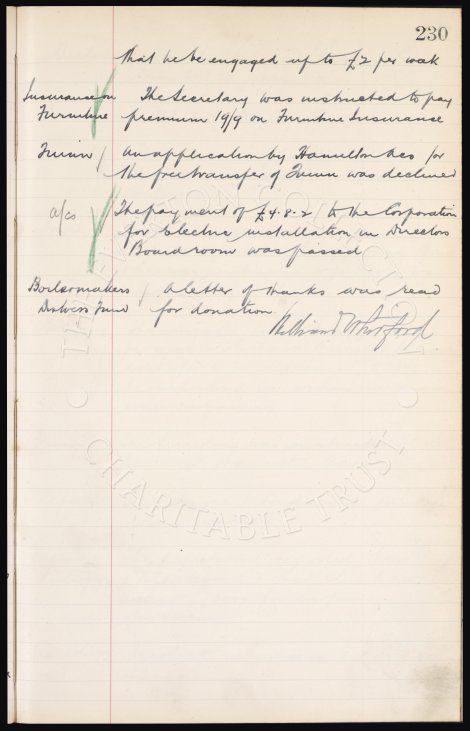 230
that he be engaged up to £2 per week
Insurance on Furniture / The Secretary was instructed to pay
premium 19/9 on Furniture Insurance
Quinn / An application by Hamilton Acs for
the free transfer of Quinn was declined
a/cs / The payment of £4.8.2 to the Corporation
for Electric installation in Directors
Board room was passed
Boilermakers Distress Fund / A letter of thanks was read
for donation
William Whitford
THE EVERTON COLLECTION
CHARITABLE TRUST